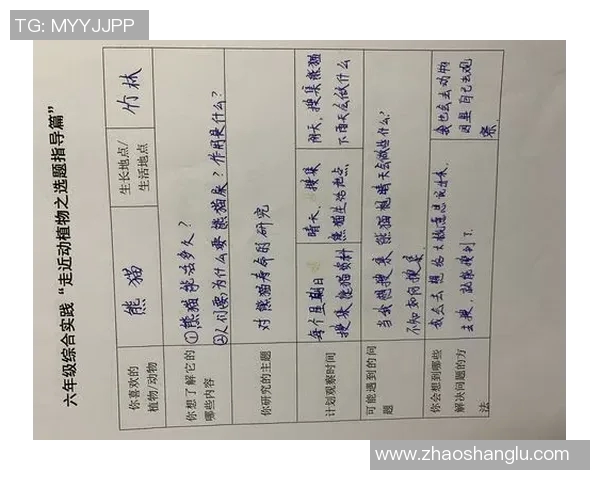 TG: MYYJJPP
六年级综合实践“走近动植物之选题指导篇”
你喜欢的
植物/动物
熊猫
生长地点/
生活地点
竹林
你想了解它的
哪些内容
①熊猫能活多久?
②人们要为什么要熊猫来?作用是什么?
你研究的主题
对熊猫寿命的研究
计划观察时间
每个星期日
搜集熊猫资料
晴天,搜集
熊猫生活地点
阴天,搜集熊猫
下雨天会做什么
可能遇到的问
题
当我想搜集熊猫晴天会做些什么?
不知如何搜集
你会想到哪些
解决问题的方
法
我会去想把大概意思说进来,
去搜,就能搜到了。
我也会去动物
园里自己去观
察。
www.zhaoshanglu.com